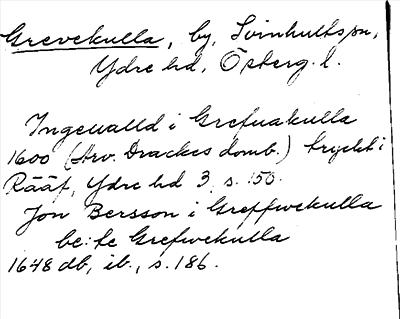 Grevekulla, by, Svinhults sn,
Ydre hd, Österg. l.
Ingeualld i Grefuakulla
1600 (Arv. Drackes domb.) tryckt i
Rääf, Ydre hd 3, s. 150.
Jon Bersson i Greffwekulla
be:te Grefwekulla
1648 db, ib., s. 186.